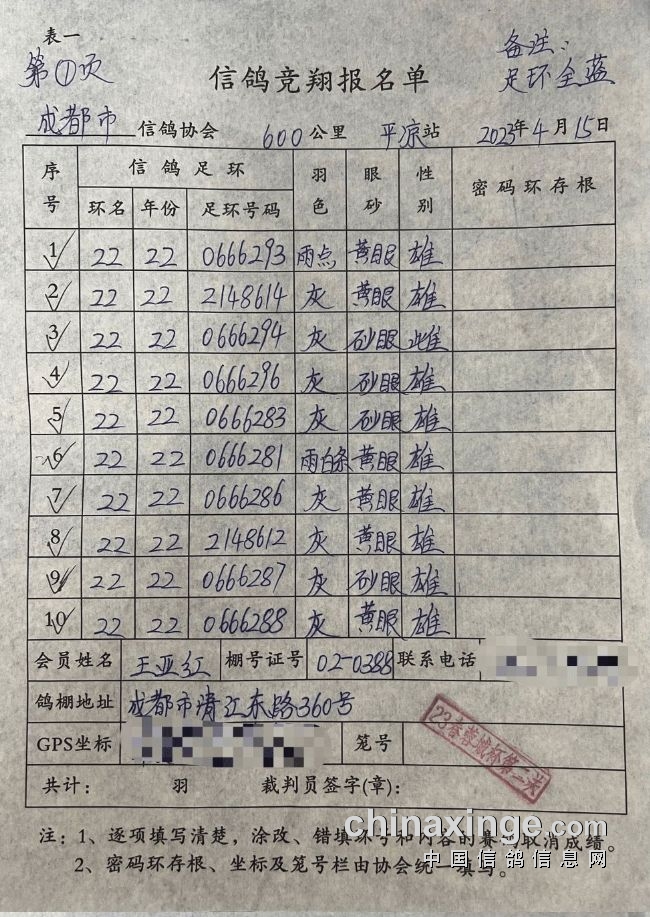 表一
第①页
备注：
足环全蓝
信鸽竞翔报名单
成都市 信鸽协会 600公里 平凉站 2023年4月15日
序号 信鸽足环 羽色 眼砂 性别 密码环存根
环名 年份 足环号码
1 22 22 0666293 雨点 黄眼 雄
2 22 22 2148614 灰 黄眼 雄
3 22 22 0666294 灰 砂眼 雌
4 22 22 0666296 灰 砂眼 雄
5 22 22 0666283 灰 砂眼 雄
6 22 22 0666281 雨白条 黄眼 雄
7 22 22 0666286 灰 黄眼 雄
8 22 22 2148612 灰 黄眼 雄
9 22 22 0666287 灰 砂眼 雄
10 22 22 0666288 灰 黄眼 雄
会员姓名 王亚红 棚号证号 02-0388 联系电话
鸽棚地址 成都市清江东路360号
GPS坐标 笼号
23春蓉城杯第一关
共计： 羽 裁判员签字(章)：
注：1、逐项填写清楚，涂改、错填环号和内容的赛鸽取消成绩。
2、密码环存根、坐标及笼号栏由协会统一填写。
chinaxinge.com
中国信鸽信息网